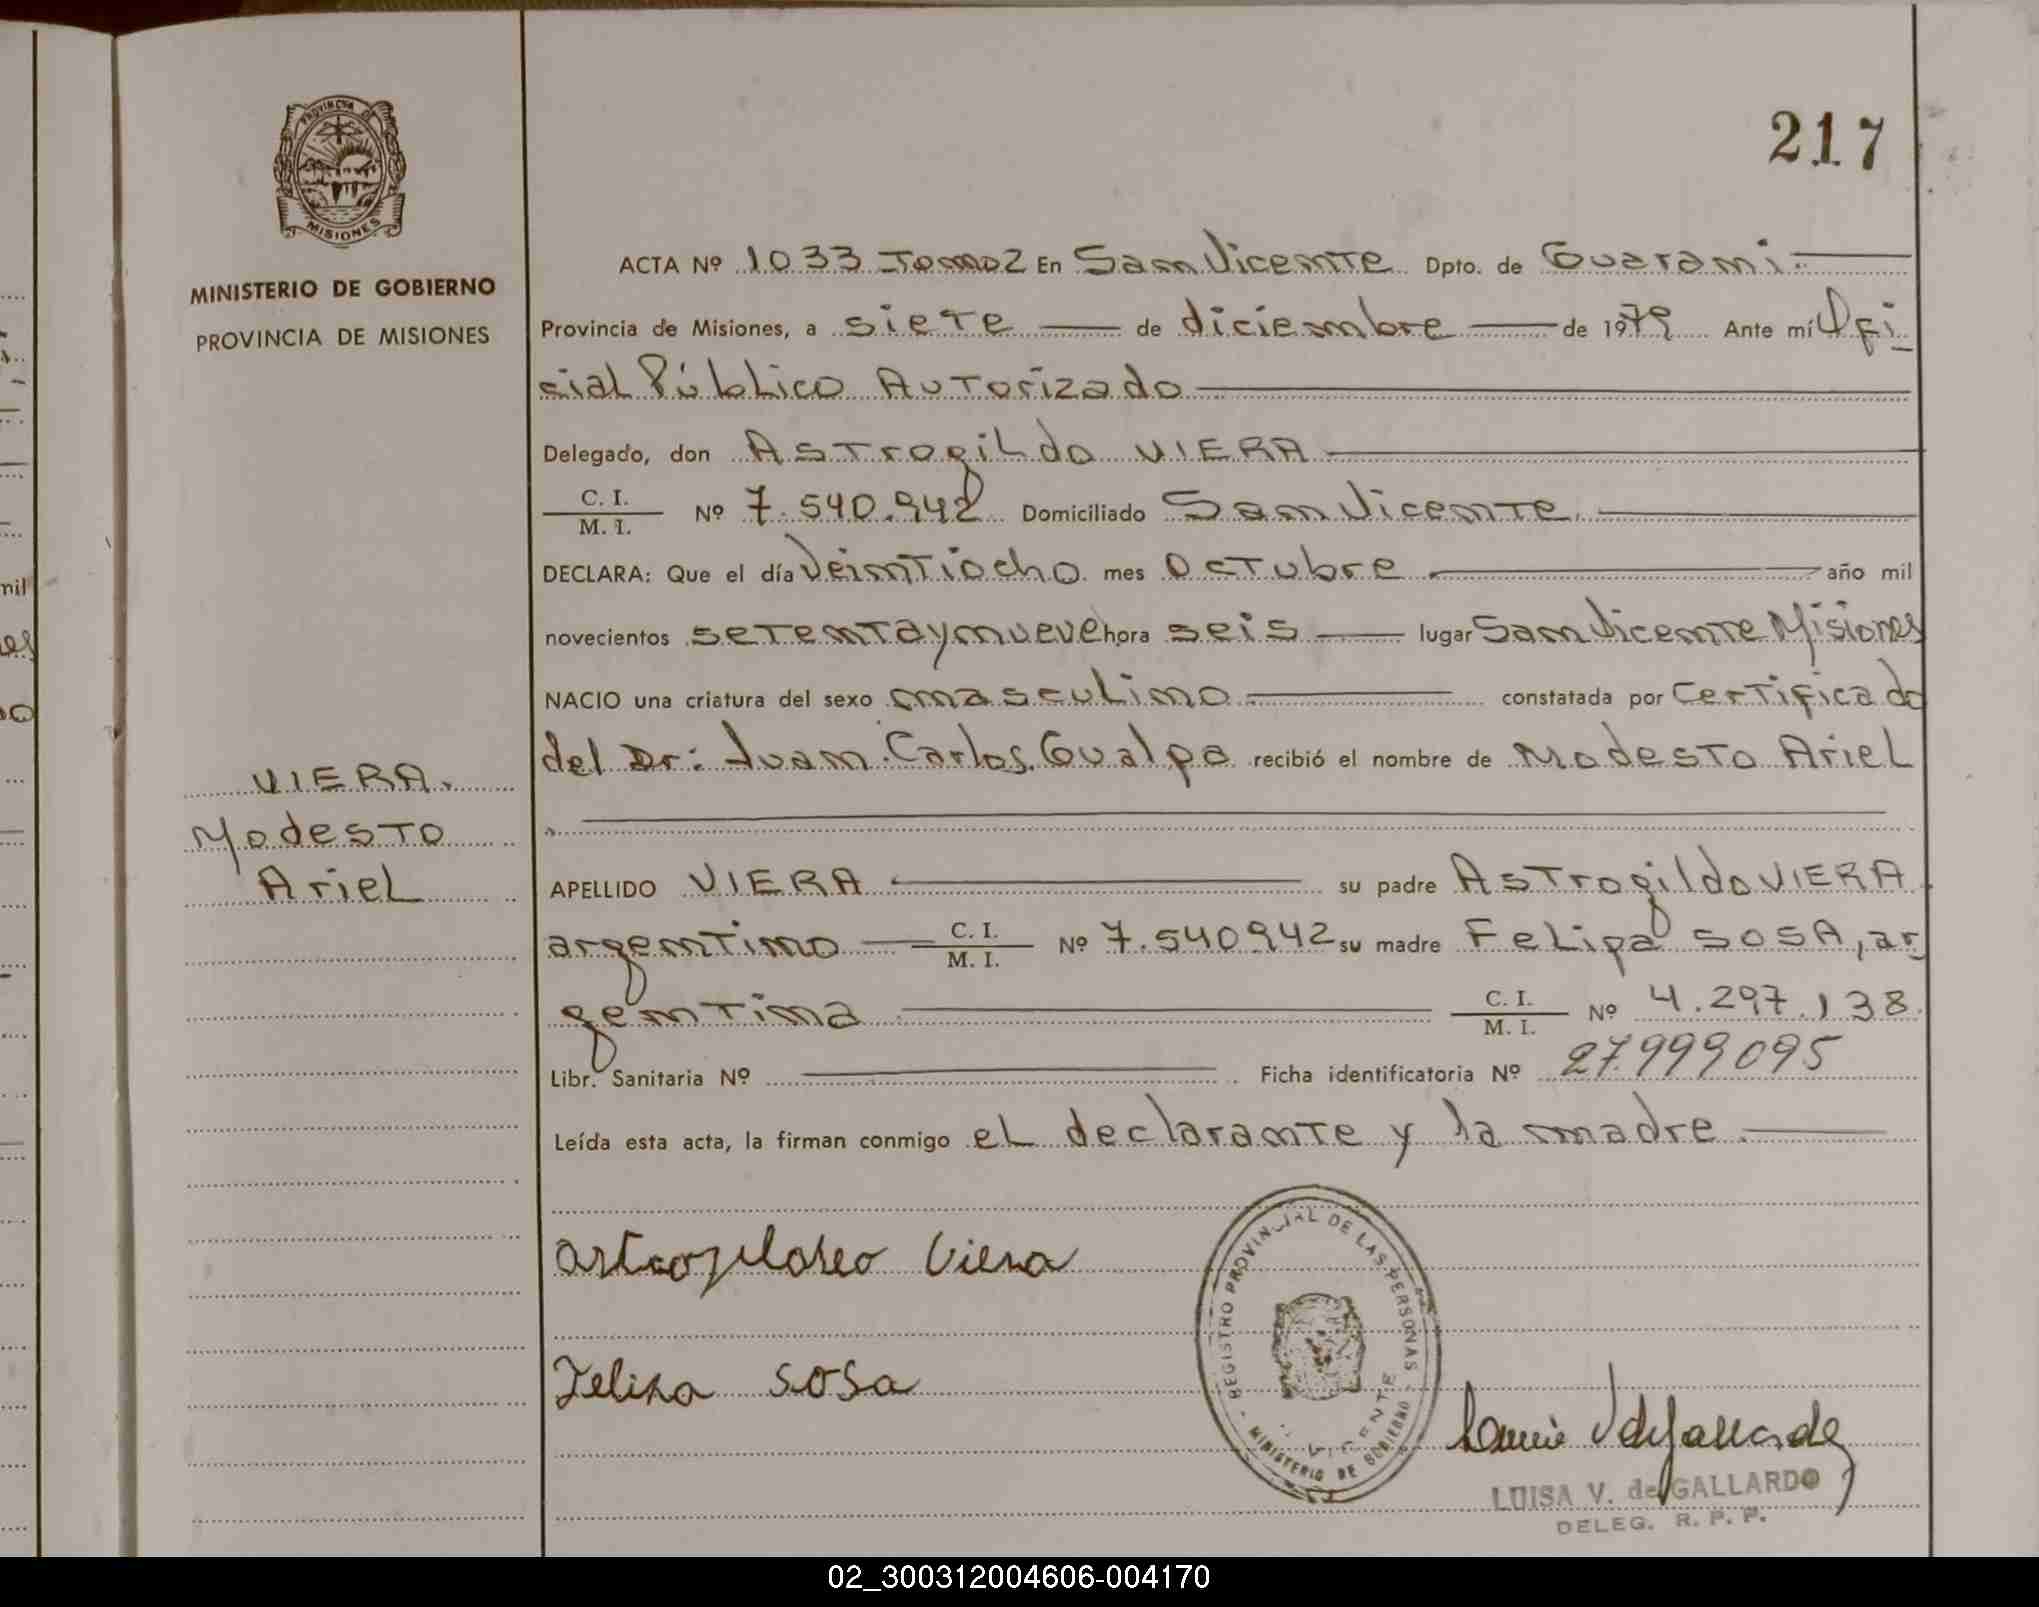 PROVINCIA DE
MISIONES
MINISTERIO DE GOBIERNO
PROVINCIA DE MISIONES
VIERA.
Modesto
Ariel
217
ACTA Nº 1033 Tomo 2 En San Vicente Dpto. de Guarani.
Provincia de Misiones, a siete de diciembre de 1979 Ante mí Ofi
cial Público Autorizado
Delegado, don Astrogildo VIERA
C. I. / M. I. Nº 7.540.942 Domiciliado San Vicente.
DECLARA: Que el día veintiocho mes Octubre año mil
novecientos setenta y nueve hora seis lugar San Vicente Misiones
NACIO una criatura del sexo masculino constatada por Certificado
del Dr: Juan Carlos Gualpa recibió el nombre de Modesto Ariel
APELLIDO VIERA su padre Astrogildo VIERA
argentino C. I. / M. I. Nº 7.540942 su madre Felipa SOSA, ar
gentina C. I. / M. I. Nº 4.297.138.
Libr. Sanitaria Nº Ficha identificatoria Nº 27.999095
Leída esta acta, la firman conmigo el declarante y la madre.
Viera
Felipa Sosa
REGISTRO PROVINCIAL DE LAS PERSONAS
MINISTERIO DE GOBIERNO
VICENTE
LUISA V. de GALLARDO
DELEG. R. P. P.
02_300312004606-004170